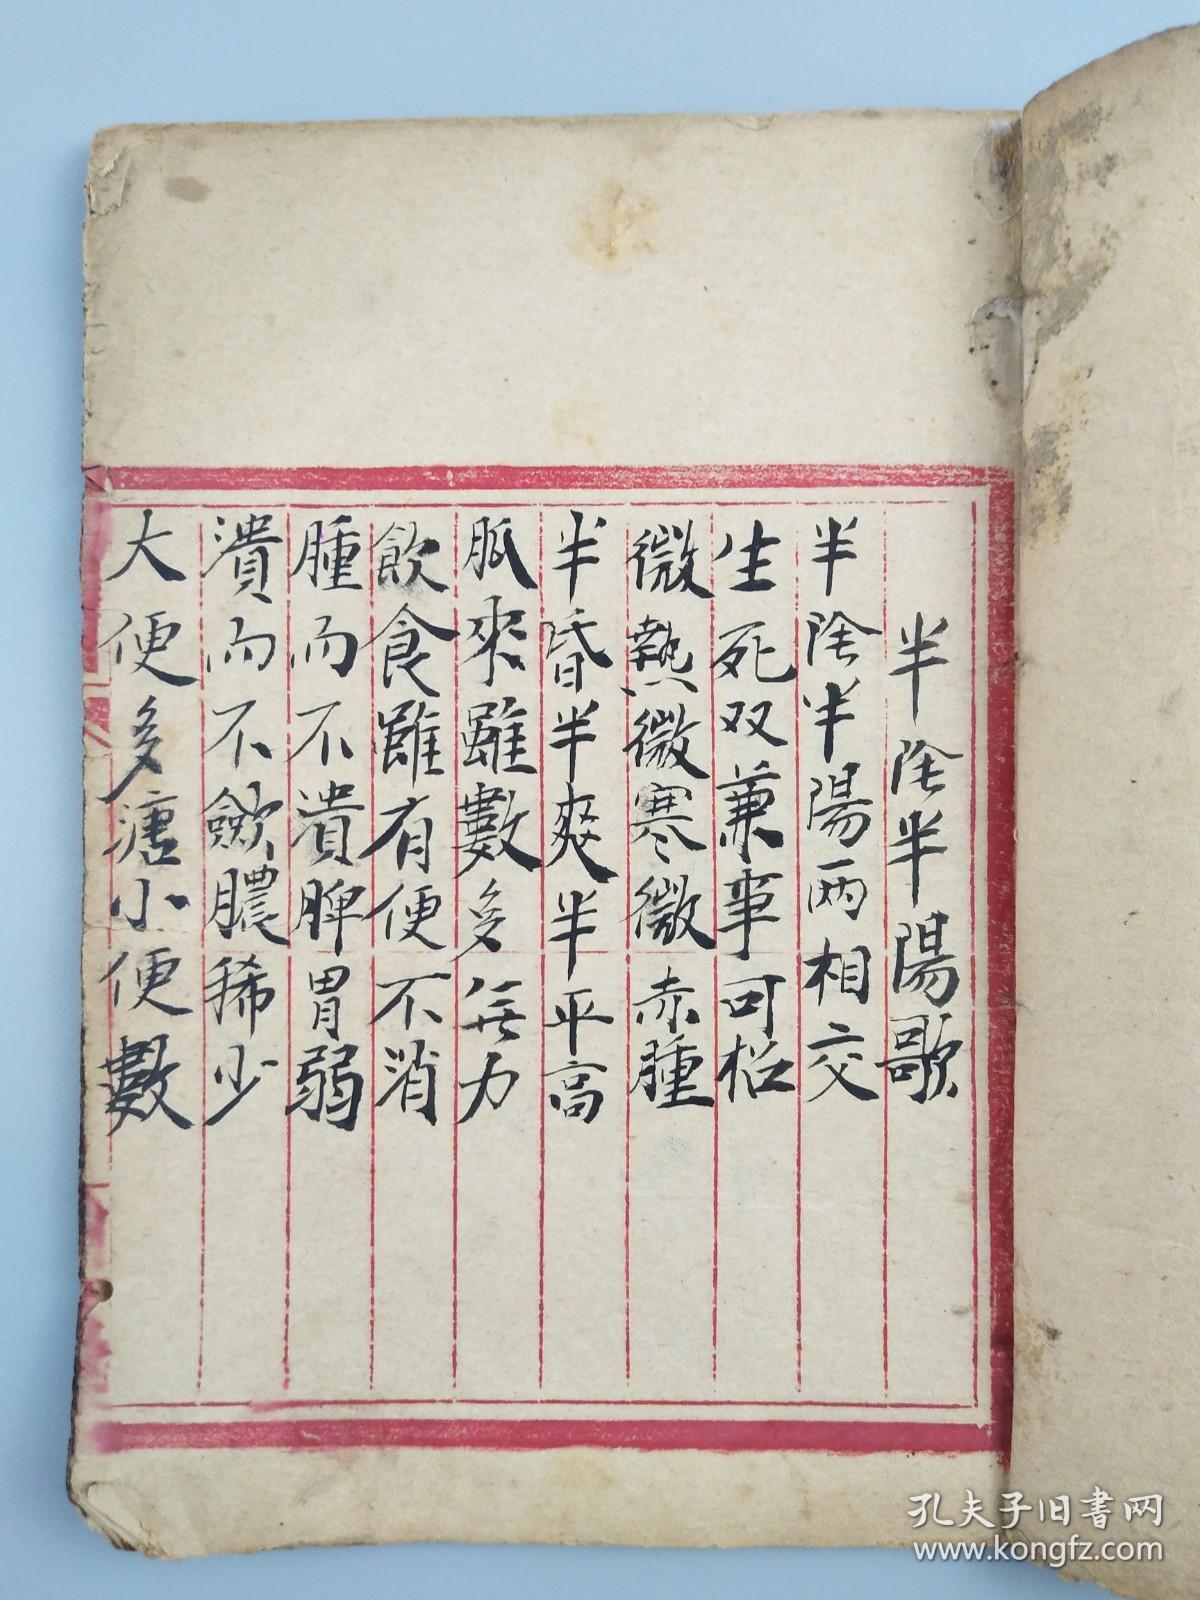 半陰半陽歌
半陰半陽兩相交
生死双兼事可招
微熱微寒微赤腫
半昏半爽半平高
脈來雖數多無力
飲食雖有便不消
腫而不潰脾胃弱
潰而不斂膿稀少
大便多溏小便數
孔夫子旧书网
www.kongfz.com